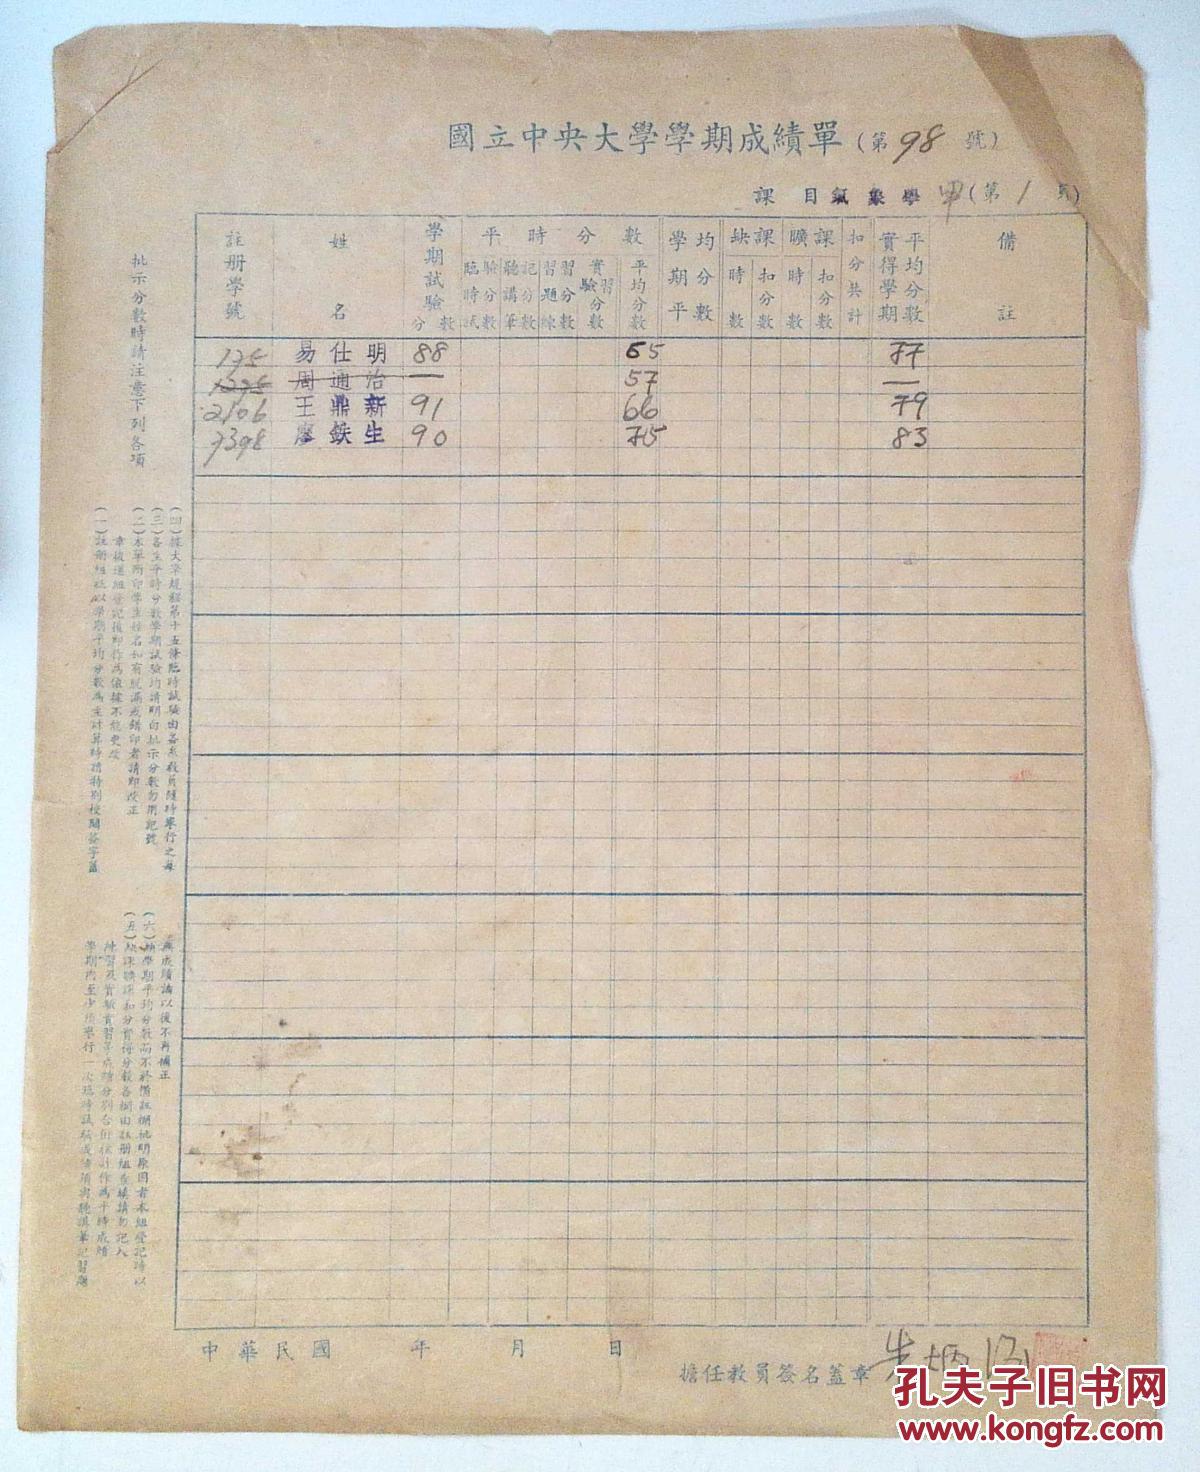 國立中央大學學期成績單（第98號）
課目氣象學甲（第1頁）
註册學號 姓名 學期試驗分數 平時分數 學期平均分數 缺課 曠課 扣分共計 實得學期平均分數 備註
臨時試驗分數 聽講筆記分數 習題練習分數 實驗實習分數 平均分數 時數 扣分數 時數 扣分數
175 易仕明 88 65 77
周通治 — 57 —
2106 王鼎新 91 66 79
7398 廖鉄生 90 75 83
批示分數時請注意下列各項
（一）註册組祇以學期平均分數為主計算時請特別校閱簽字蓋
章後送組登記後即作為依據不能更改
（二）本單所印學生姓名如有脫漏或錯印者請即改正
（三）各生平時分數學期試驗均請明白批示分數勿用記號
（四）據大學規程第十五條臨時試驗由各系教員隨時舉行之每
學期內至少須舉行一次臨時試驗成績須與聽講筆記習題
練習及實驗實習等成績分別合併核計作為平時成績
（五）缺課曠課扣分實得分數各欄由註册組查填請勿記入
（六）缺學期平均分數而不於備註欄批明原因者本組登記時以
無成績論以後不再補正
中華民國 年 月 日
擔任教員簽名蓋章 朱炳海
孔夫子旧书网
kongfz.com